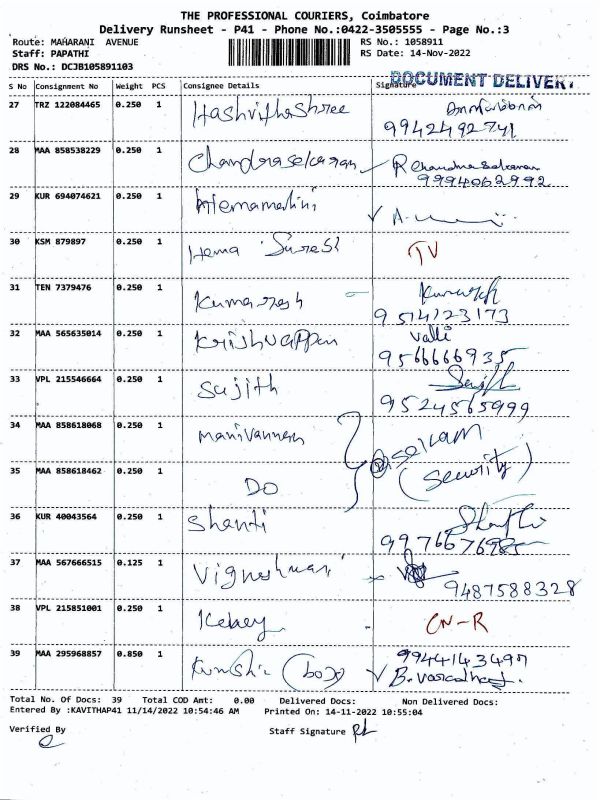 THE PROFESSIONAL COURIERS, Coimbatore
Delivery Runsheet - P41 - Phone No.:0422-3505555 - Page No.:3
Route: MAHARANI AVENUE RS No.: 1058911
Staff: PAPATHI RS Date: 14-Nov-2022
DRS No.: DCJB105891103 DOCUMENT DELIVERY
S No Consignment No Weight PCS Consignee Details Signature
27 TRZ 122084465 0.250 1 Hashvithashree
9942492741
28 MAA 858538229 0.250 1 Chandrasekaran R Chandrasekaran
9994062992
29 KUR 694074621 0.250 1 Hemamalini
30 KSM 879897 0.250 1 Hema Suresh TV
31 TEN 7379476 0.250 1 Kumaresh
9514123173
32 MAA 565635014 0.250 1 Krishnappan Valli
9566666935
33 VPL 215546664 0.250 1 Sujith
9524565999
34 MAA 858618068 0.250 1 Manivannan selvam
35 MAA 858618462 0.250 1 DO (Security)
36 KUR 40043564 0.250 1 Shanti
37 MAA 567666515 0.125 1 Vigneshwari
9487588328
38 VPL 215851001 0.250 1 CN-R
39 MAA 295968857 0.850 1
Total No. Of Docs: 39 Total COD Amt: 0.00 Delivered Docs: Non Delivered Docs:
Entered By :KAVITHAP41 11/14/2022 10:54:46 AM Printed On: 14-11-2022 10:55:04
Verified By Staff Signature